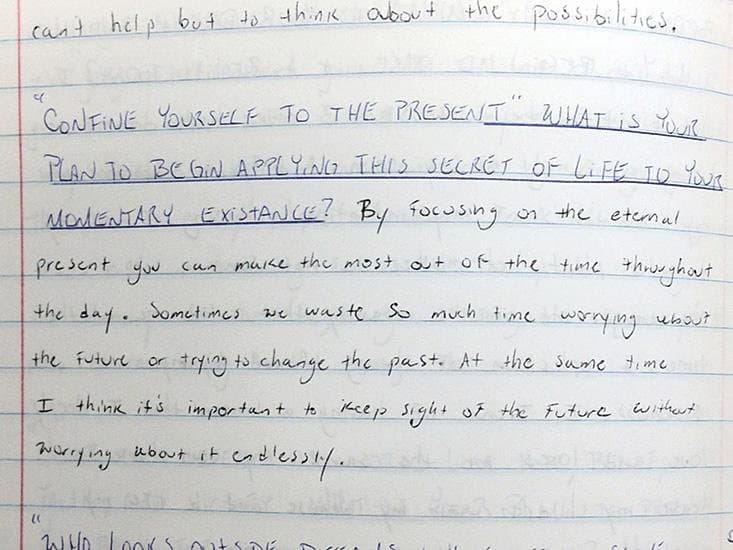 can't help but to think about the possibilities.
"CONFINE YOURSELF TO THE PRESENT" WHAT iS YOUR
PLAN TO BEGIN APPLYING THIS SECRET OF LiFE TO YOUR
MOMENTARY EXISTANCE? By focusing on the eternal
present you can make the most out of the time throughout
the day. Sometimes we waste so much time worrying about
the future or trying to change the past. At the same time
I think it's important to keep sight of the future without
worrying about it endlessly.
"WHO LOOKS OUTSIDE